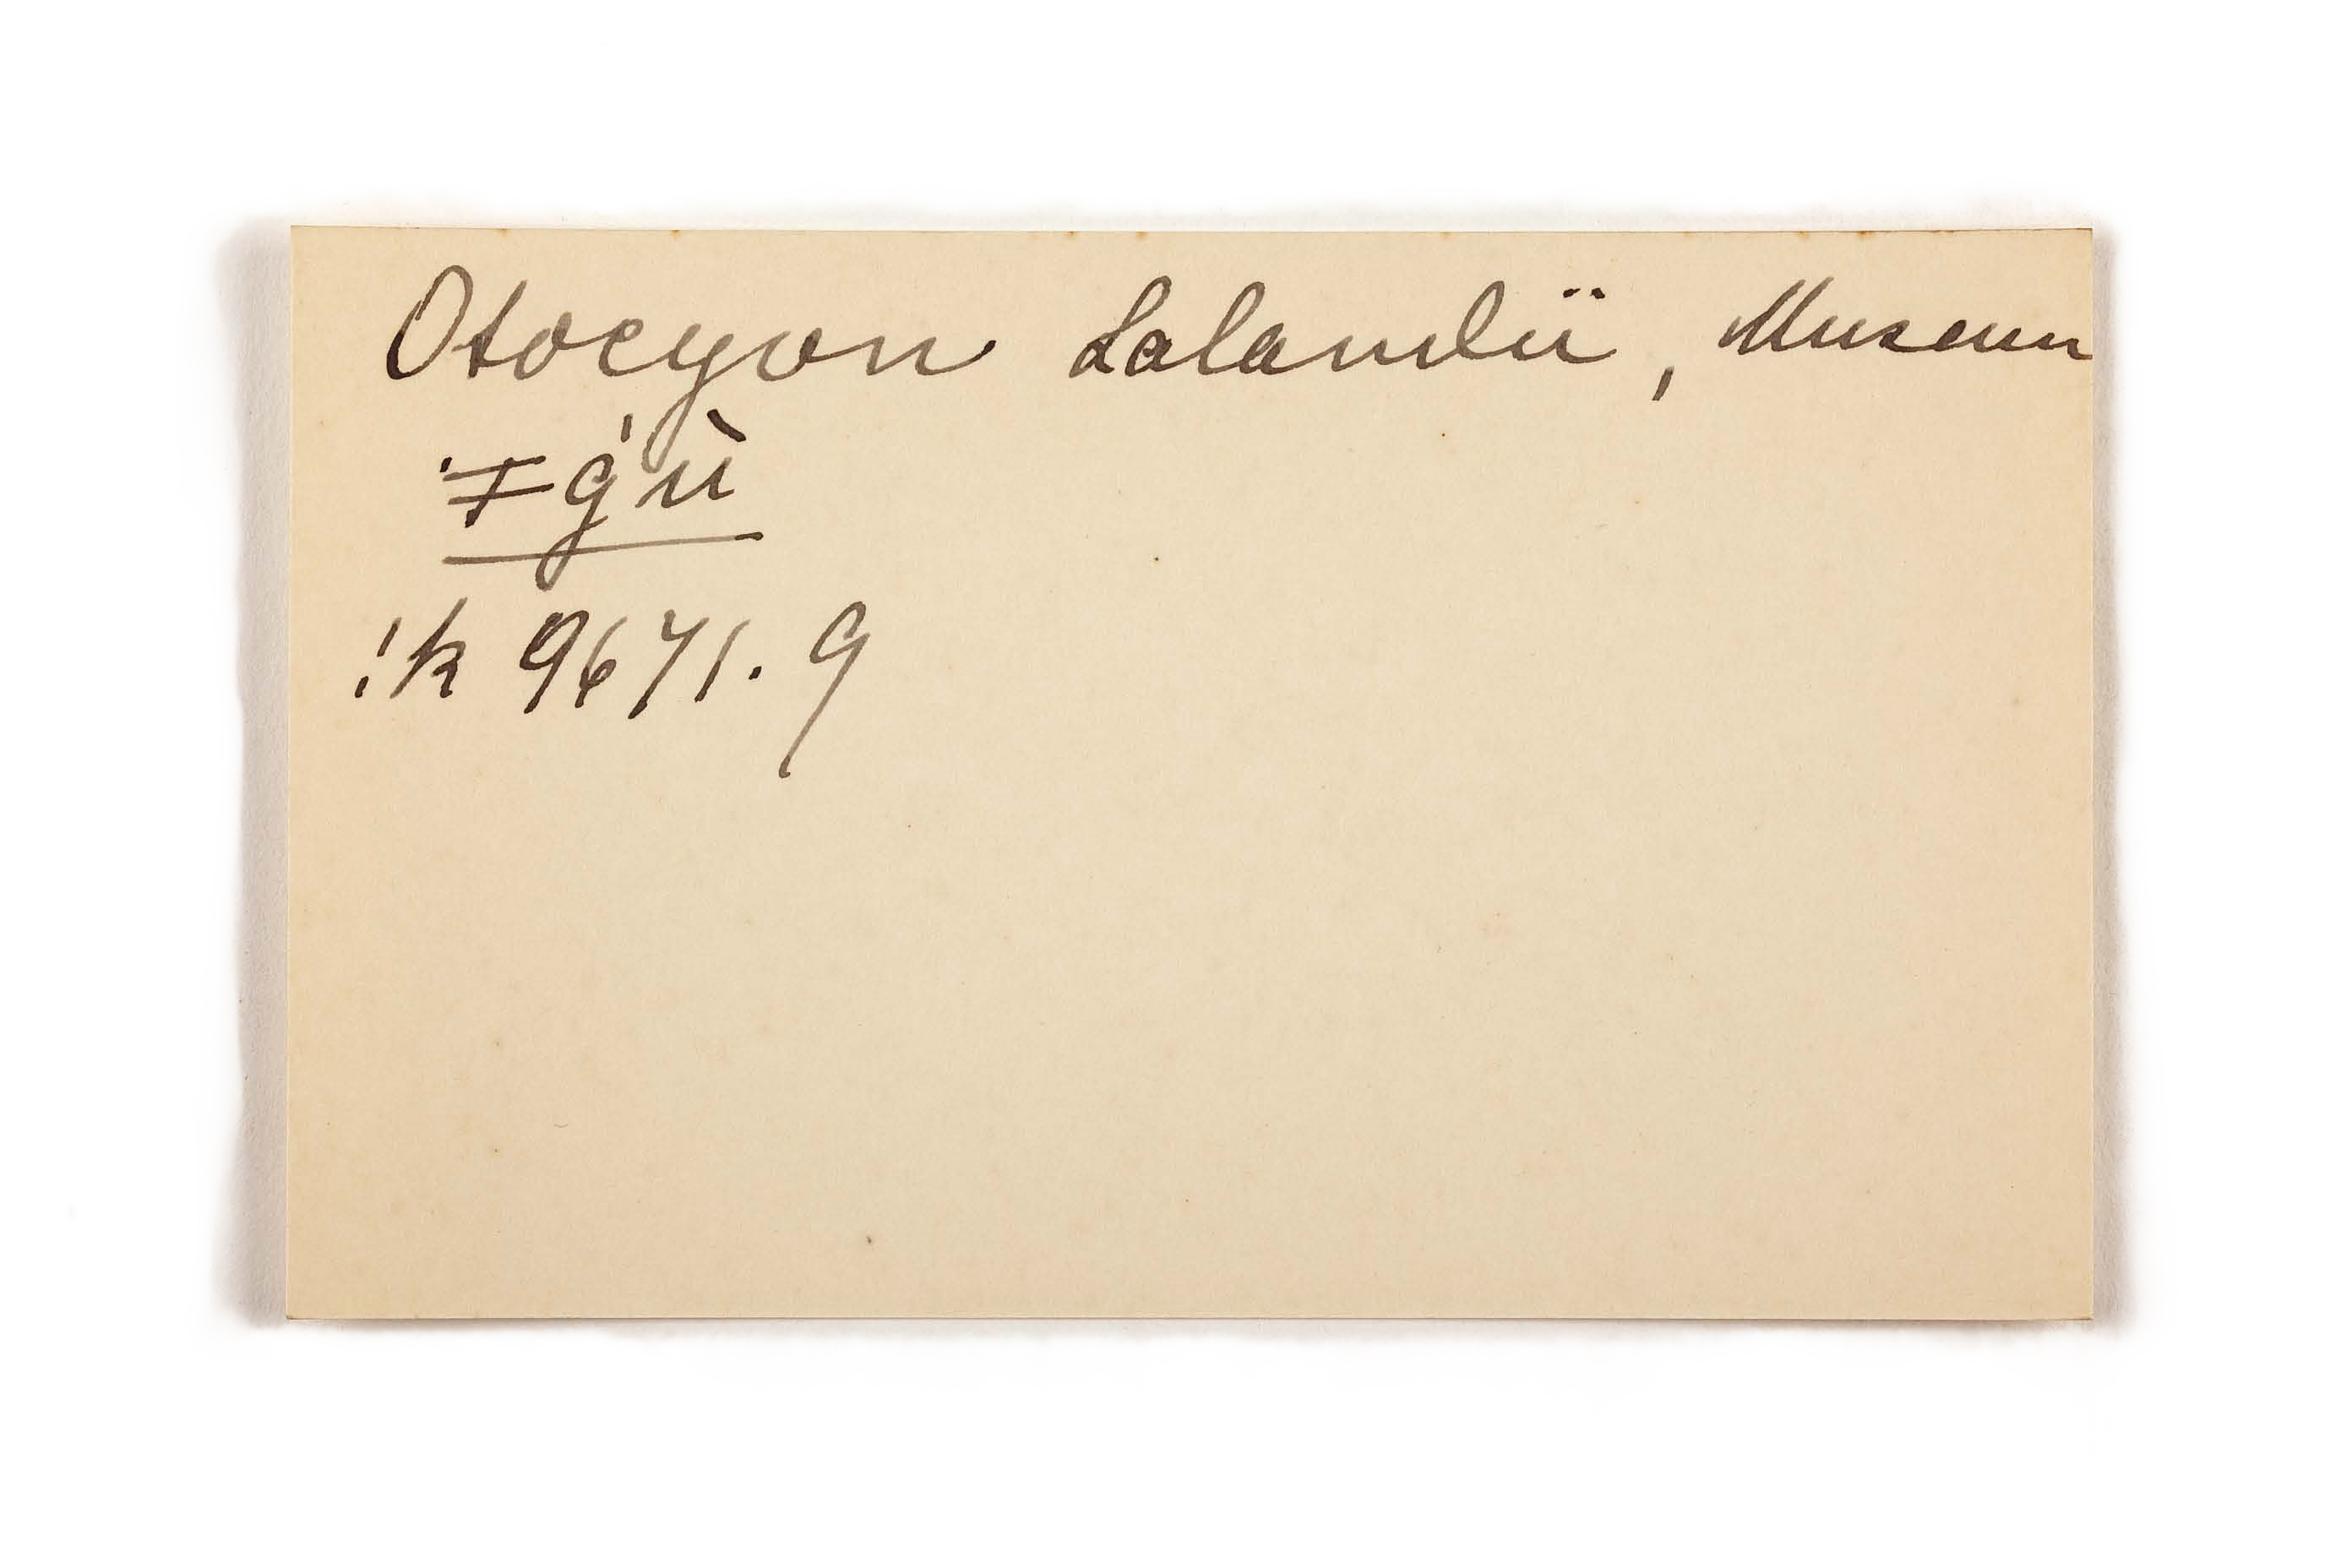 Otocyon Lalandii, Museum
ǂg'ù
!k 9671.9